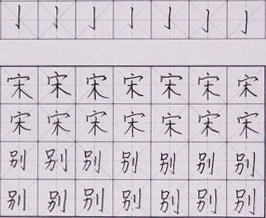 亅亅亅亅亅亅亅
宋宋宋宋宋宋宋
宋宋宋宋宋宋宋
别别别别别别别
别别别别别别别